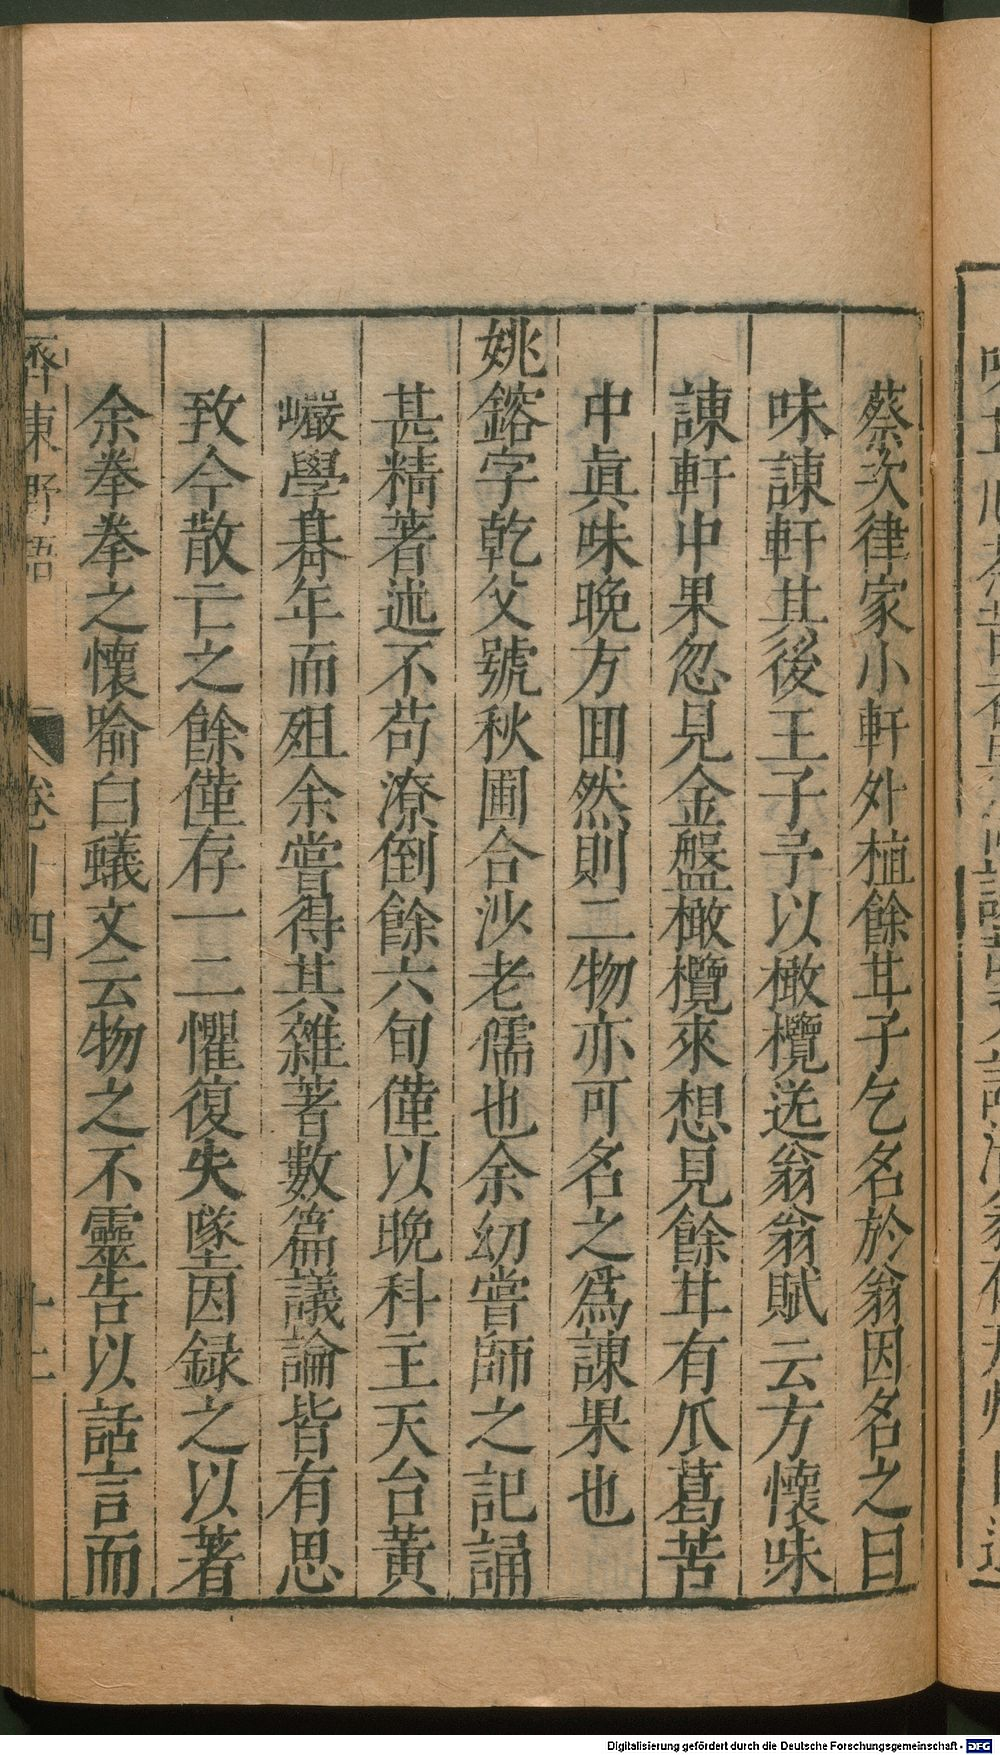 蔡次律家小軒外植餘甘子乞名於翁因名之曰
味諫軒其後王子予以橄欖送翁翁賦云方懷味
諫軒中果忽見金盤橄欖來想見餘甘有瓜葛苦
中眞味晚方囬然則二物亦可名之爲諫果也
姚鎔字乾父號秋圃合沙老儒也余幼嘗師之記誦
甚精著述不苟潦倒餘六旬僅以晚科主天台黃
巖學朞年而殂余嘗得其雜著數篇議論皆有思
致今散亡之餘僅存一二懼復失墜因録之以著
余拳拳之懷喻白蟻文云物之不靈告以話言而
齊東野語
卷十四
Digitalisierung gefördert durch die Deutsche Forschungsgemeinschaft - DFG